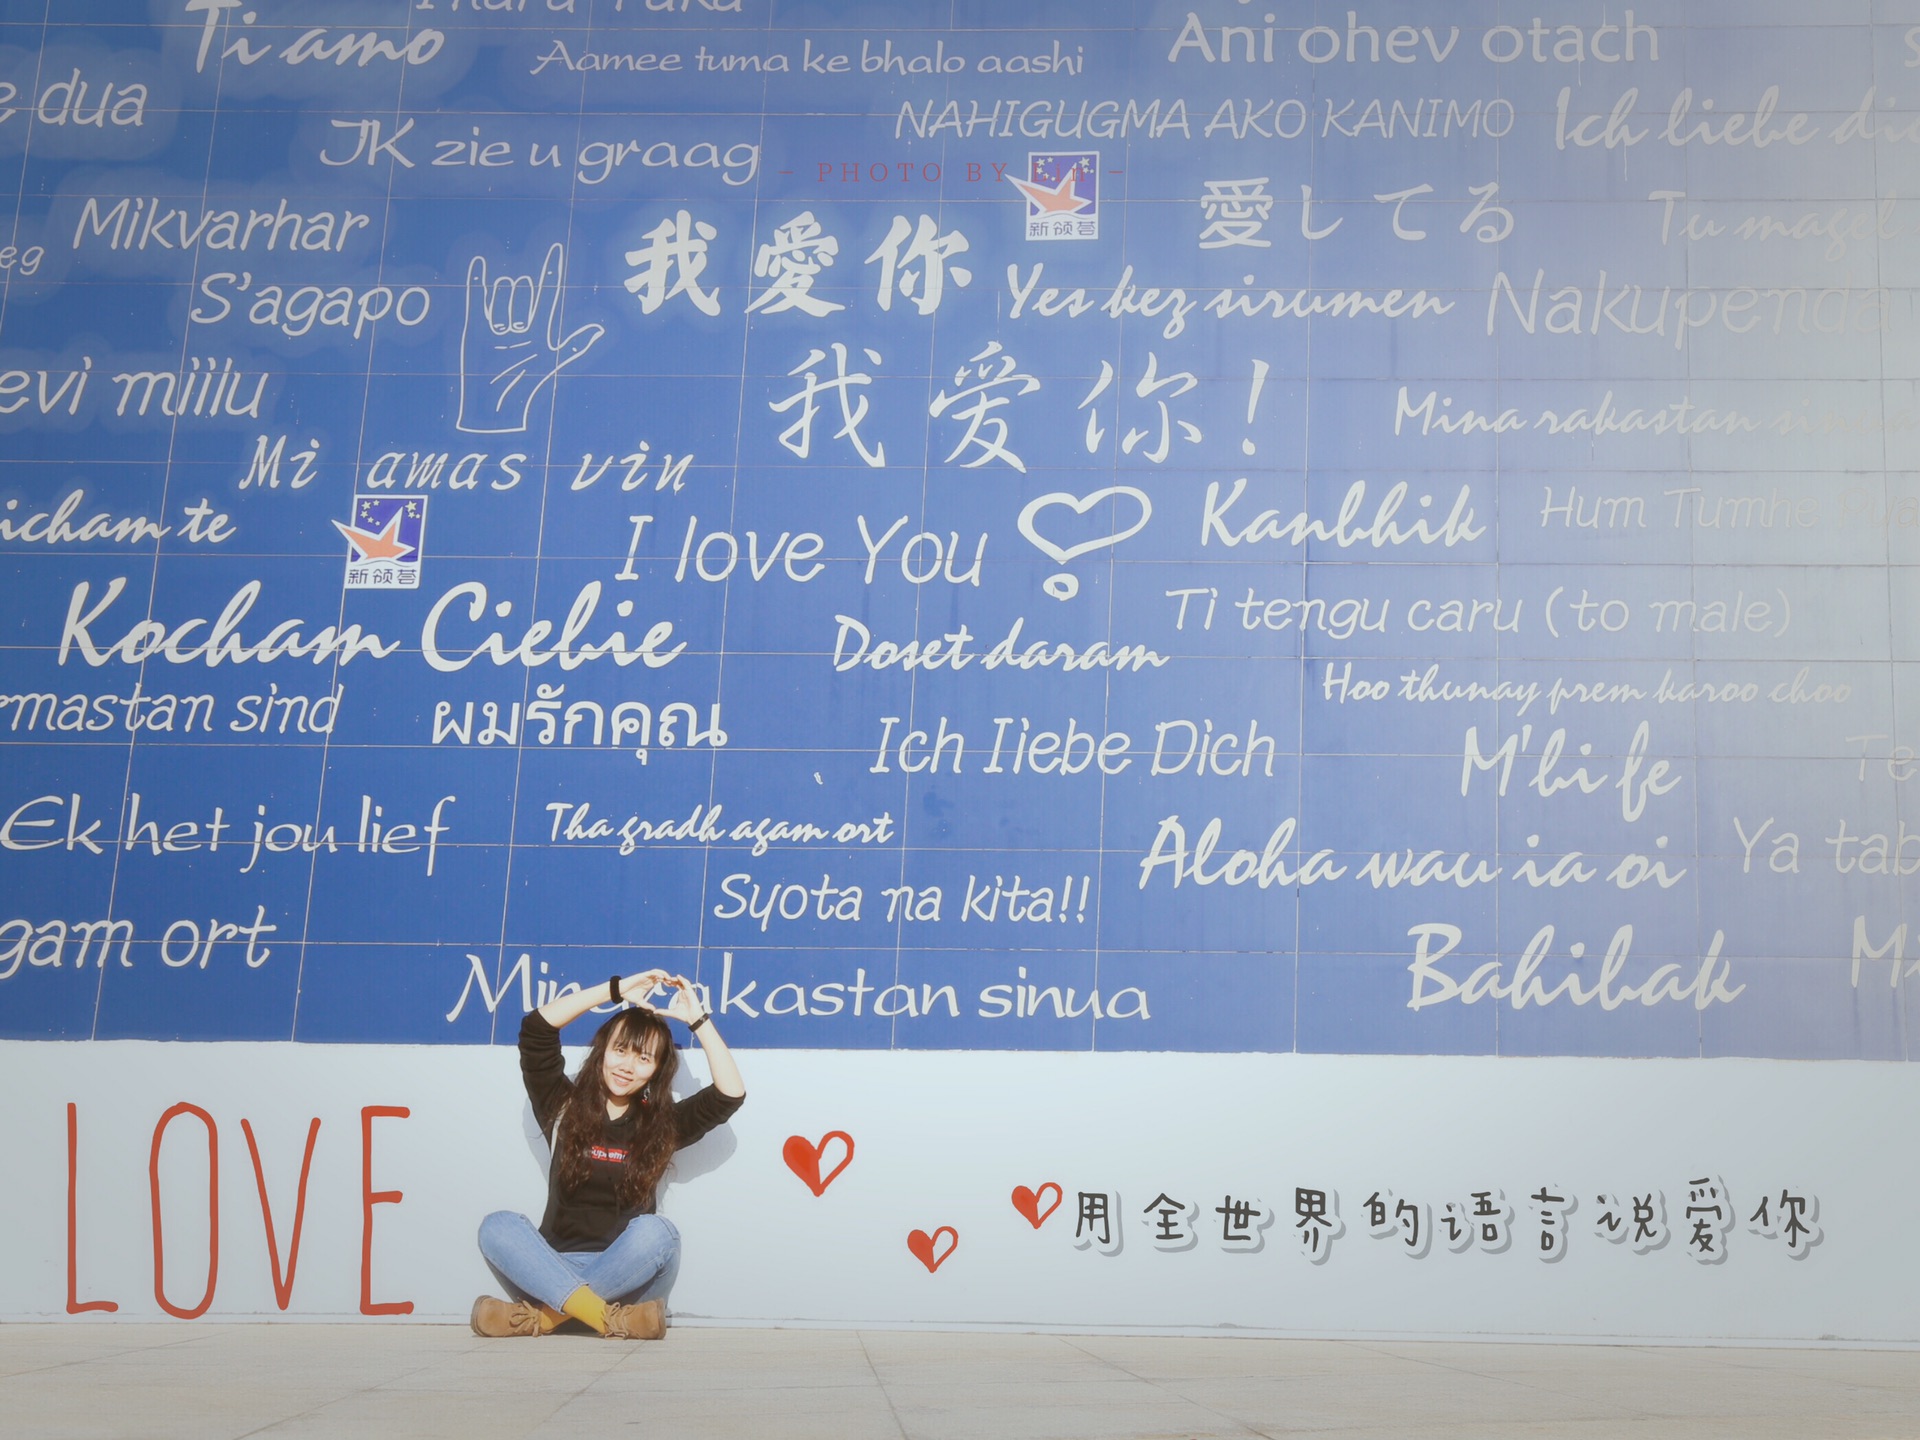 Ti amo
Aamee tuma ke bhalo aashi
Ani ohev otach
e dua
NAHIGUGMA AKO KANIMO
Ich liebe
JK zie u graag
- PHOTO BY Lin -
新领荟
Mikvarhar
愛してる
Tu magel
eg
S'agapo
我愛你
Yes kez sirumen
Nakupenda
evi miilu
我爱你!
Mina rakastan
Mi amas vin
icham te
新领荟
I love You
Kanbhik
Hum Tumhe
Kocham Ciebie
Doset daram
Ti tengu caru (to male)
rmastan sind
ผมรักคุณ
Hoo thunay prem karoo choo
Ich Iiebe Dich
M'bi fe
Te
Ek het jou lief
Tha gradh agam ort
Aloha wau ia oi
Ya tab
Syota na kita!!
gam ort
Bahibak
Mina rakastan sinua
LOVE
用全世界的语言说爱你